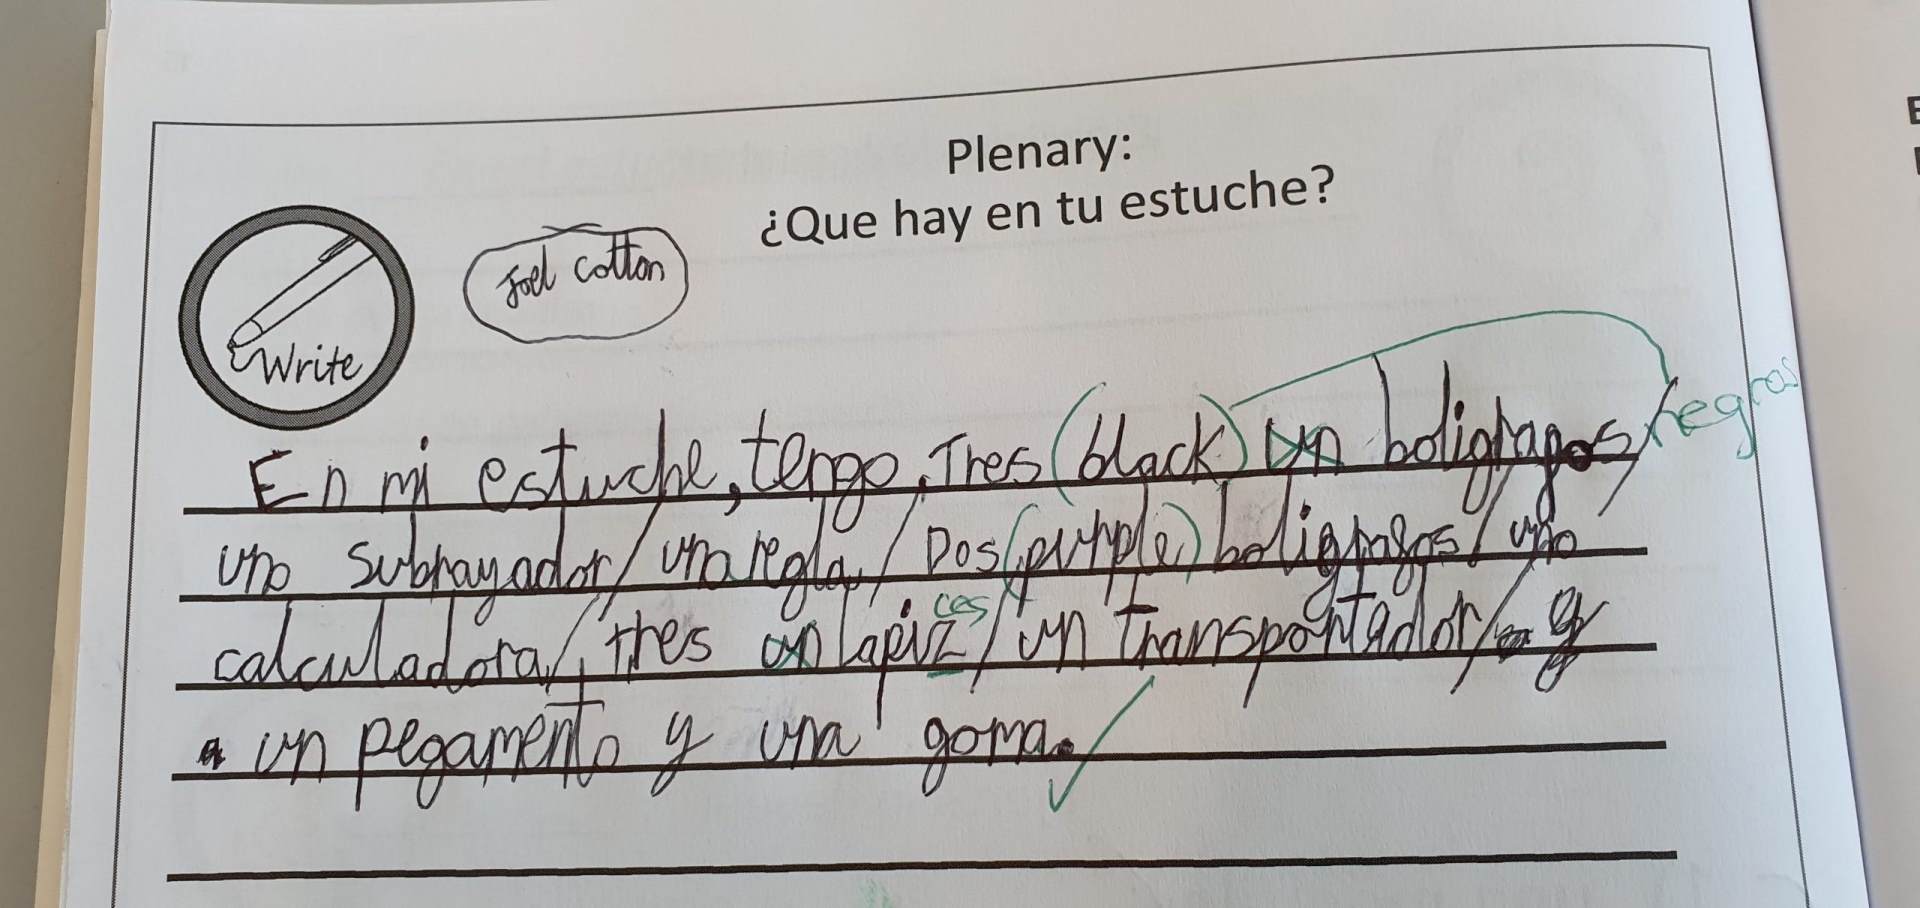 Plenary:
¿Que hay en tu estuche?
Joel cotton
Write
En mi estuche, tengo, Tres (black) un boligrapos/negros
uno subrayador/ una regla/ Dos (purple) boligrapos/ uno
calculadora/, tres un lapiz ces/ un Transportador/ y
un pegamento y una goma.